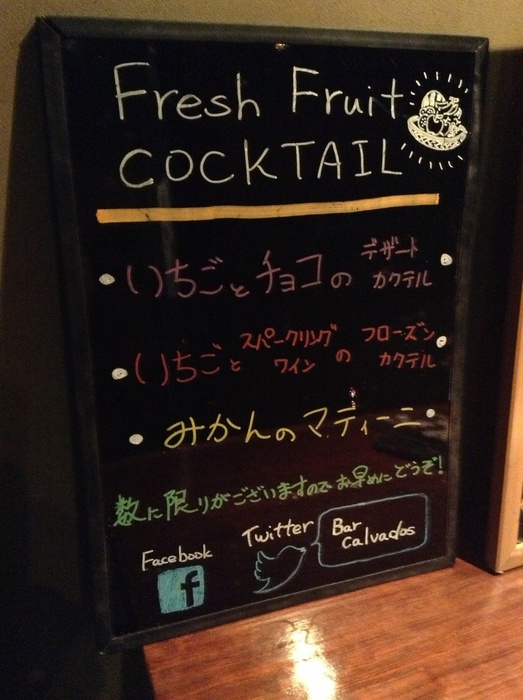 Fresh Fruit
COCKTAIL
•いちごとチョコの デザート カクテル
•いちごと スパークリング ワイン の フローズン カクテル
•みかんのマティーニ
数に限りがございますのでお早めにどうぞ!
Facebook
f
Twitter
Bar
Calvados